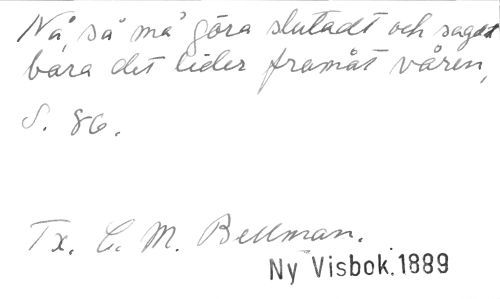 Nå, så må göra slutadt och sagdt
bara det lider framåt våren,
S. 86.
Tx. C. M. Bellman.
Ny Visbok. 1889